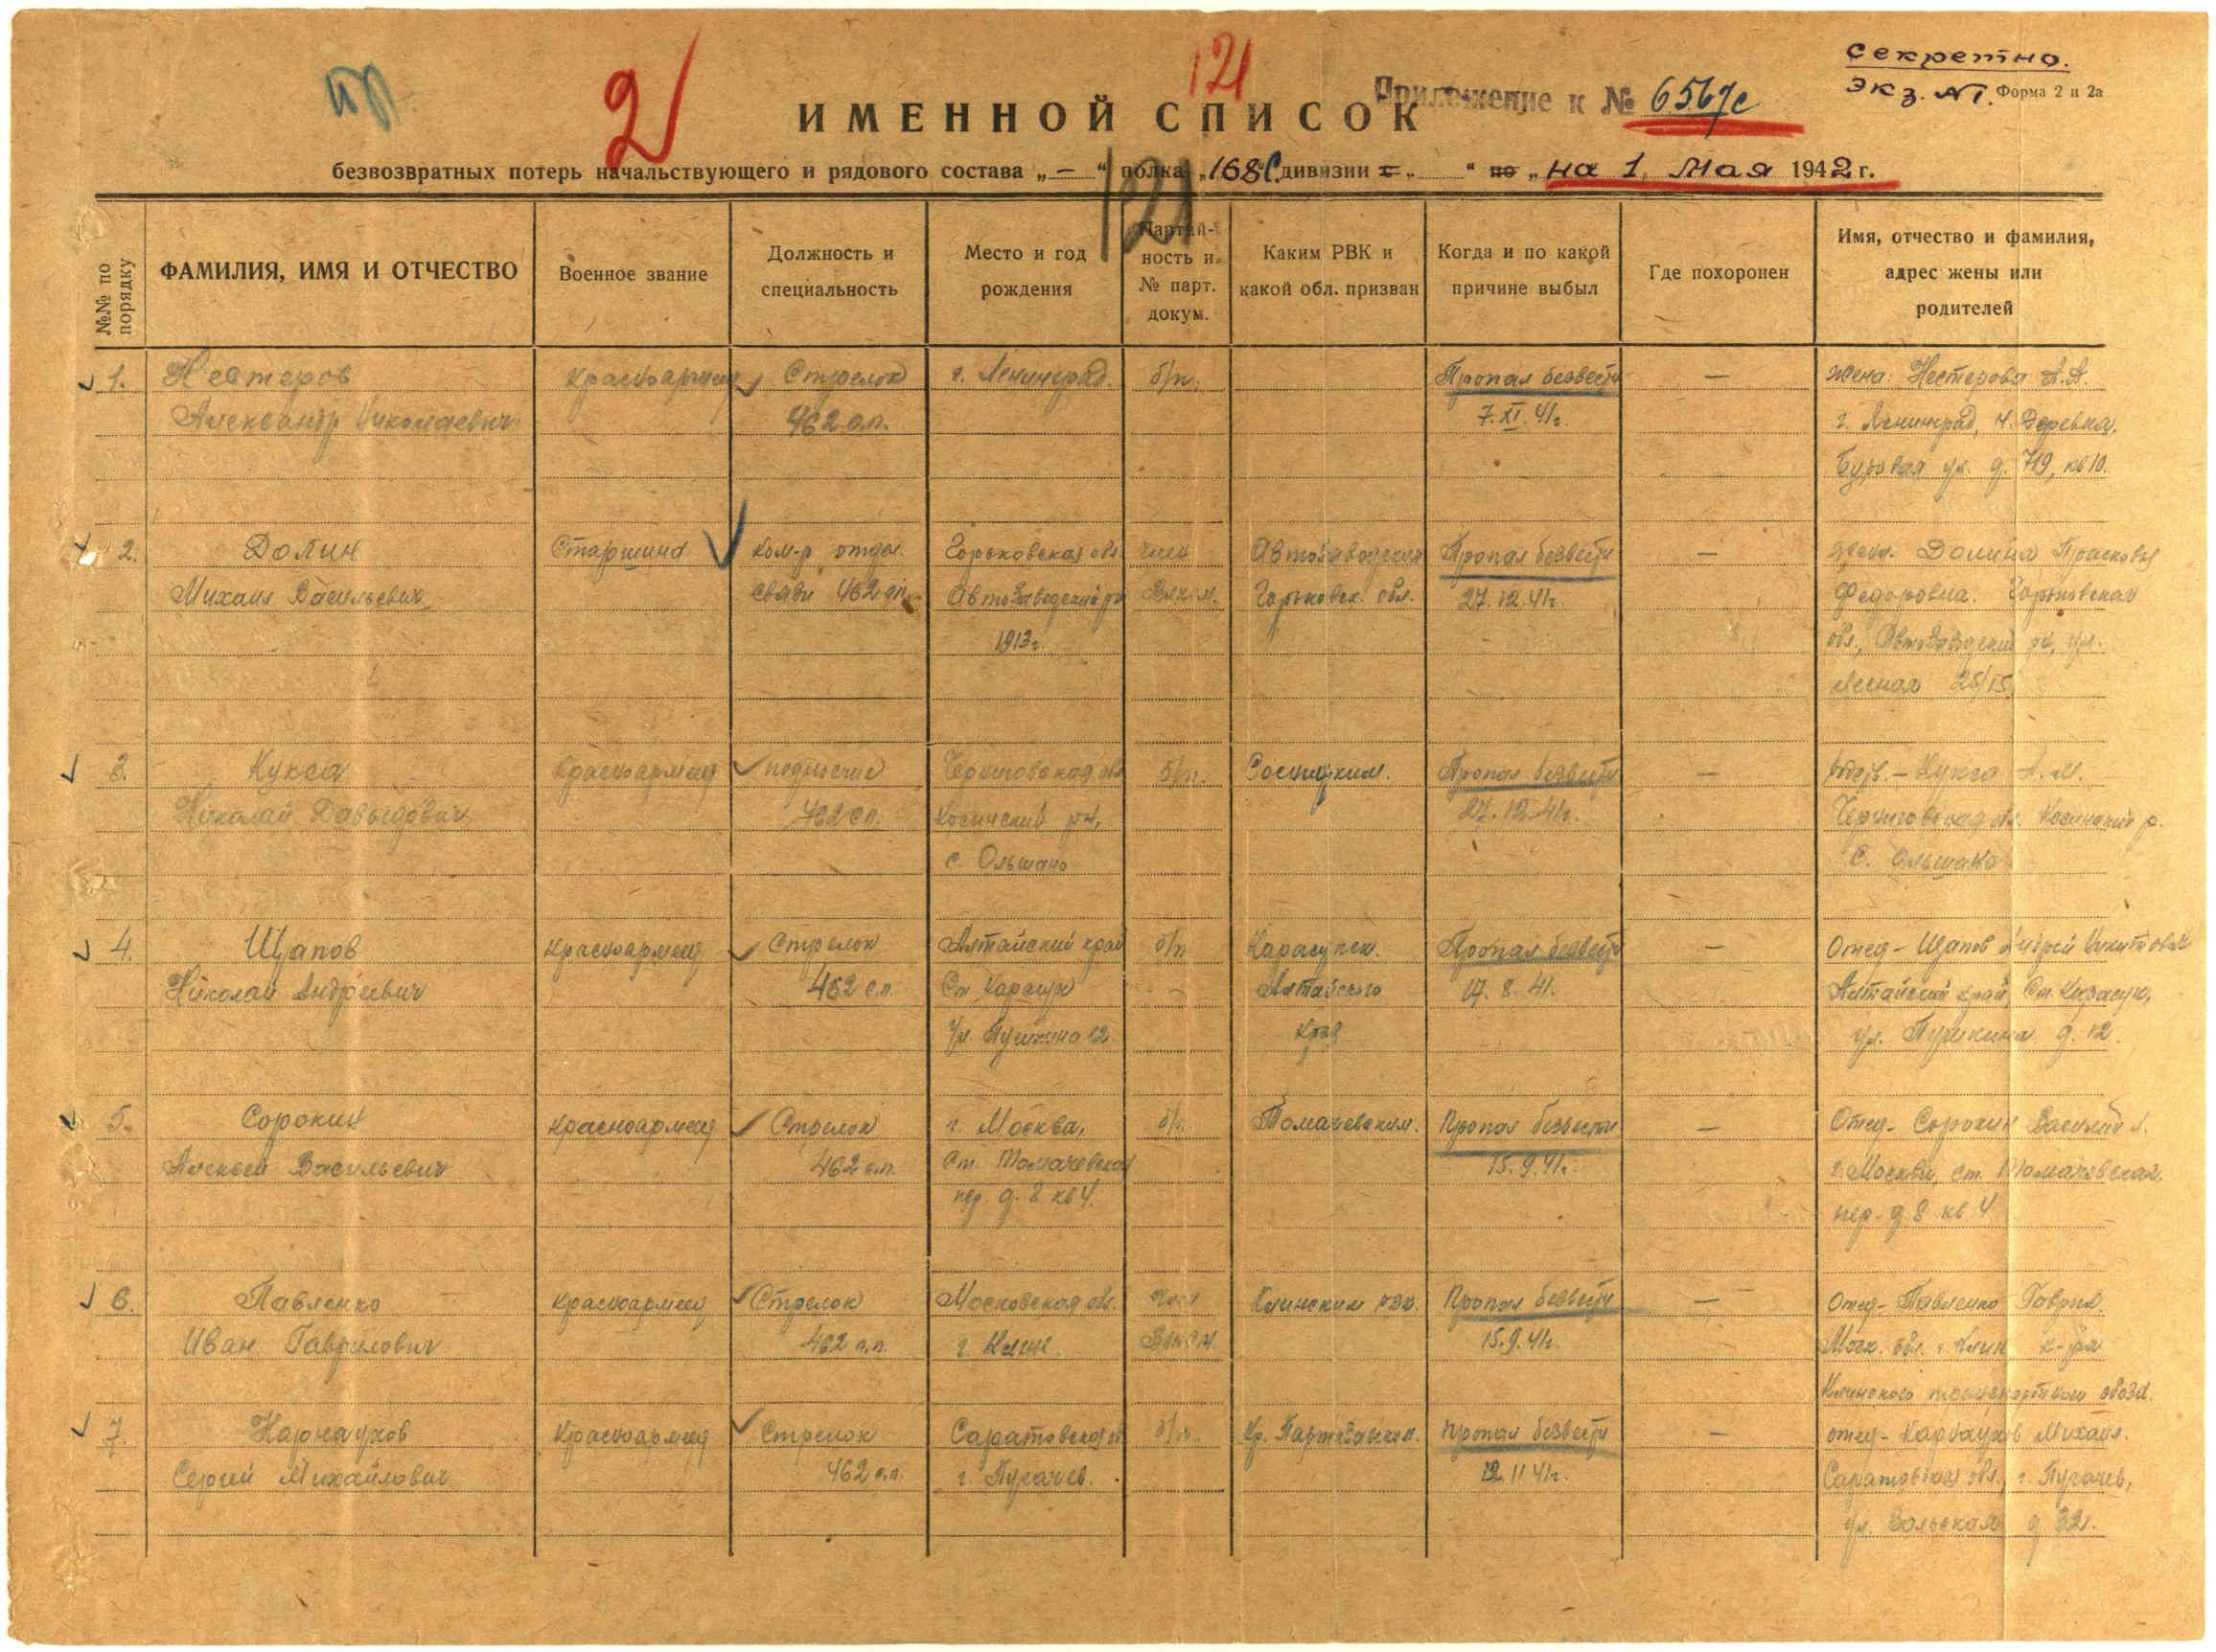 Секретно.
Экз. №1. Форма 2 и 2а
2
121
Приложение к № 6567с
ИМЕННОЙ СПИСОК
безвозвратных потерь начальствующего и рядового состава „ — “ полка „168 С“ дивизии с „ “ по „ на 1 Мая 1942 г.
121
№№ по порядку
ФАМИЛИЯ, ИМЯ И ОТЧЕСТВО
Военное звание
Должность и
специальность
Место и год
рождения
Партий-
ность и
№ парт.
докум.
Каким РВК и
какой обл. призван
Когда и по какой
причине выбыл
Где похоронен
Имя, отчество и фамилия,
адрес жены или
родителей
1. Нестеров Красноармеец Стрелок г. Ленинград. б/п. Пропал безвести — жена: Нестерова А.А.
Александр Николаевич 462 с.п. 7.XI.41г. г. Ленинград, Н. Деревня,
ул. д. кв 10.
2. Долин Старшина Ком-р отдел. Горьковская обл. член Автозаводским Пропал безвести — жена. Долина Прасковья
Михаил Васильевич связи 462 сп. Автозаводский р-н ВЛКСМ. Горьковск. обл. 27.12.41г. Федоровна. Горьковская
1913г. обл., Автозаводский р-н, ул.
Лесная 25/15
3. Кукса Красноармеец подносчик Черниговская обл. б/п. Сосницким. Пропал безвести — Кукса А.М.
Николай Давыдович 462 с.п. р-н, 27.12.41г. Черниговская обл. р.
с. Ольшано с. Ольшано
4. Щапов Красноармеец Стрелок Алтайский край б/п Карасукск. Пропал безвести — Отец - Щапов Андрей Никитович
Николай Андреевич 462 с.п. Ст. Карасук Алтайского 17.8.41. Алтайский край, Ст. Карасук,
Ул. Пушкина 12 Края ул. Пушкина д. 12.
5. Сорокин Красноармеец Стрелок г. Москва, б/п. Томачевским. Пропал безвести — Отец - Сорокин Василий
Алексей Васильевич 462 с.п. Ст. Томачевская 15.9.41г. г. Москва, ст. Томачевская.
пер. д. 8 кв 4. пер. д. 8 кв 4
6. Павленко Красноармеец Стрелок Московская обл. член Клинским РВК. Пропал безвести — Отец - Павленко Гаврил.
Иван Гаврилович 462 с.п. г. Клин. ВЛКСМ. 15.9.41г. Моск. обл. г. Клин к-ра
Клинского обоза.
7. Карнаухов Красноармеец Стрелок Саратовская об б/п. Кр. Партизанском. Пропал безвести — отец - Карнаухов Михаил.
Сергей Михайлович 462 с.п. г. Пугачев. 12.11.41г. Саратовская обл., г. Пугачев,
ул. Вольская д 32.